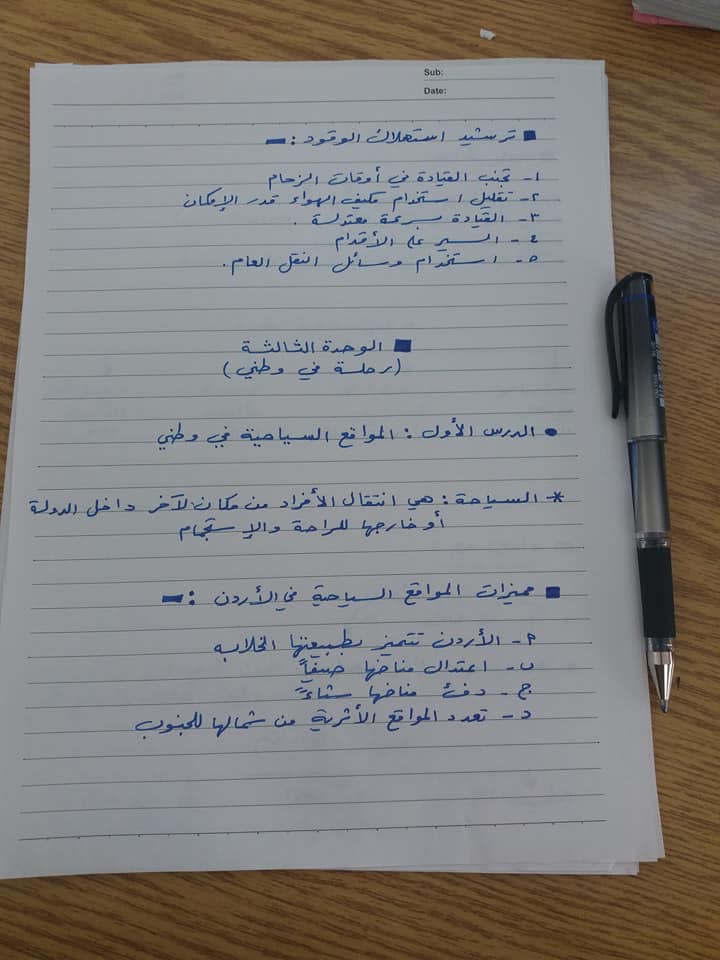 Sub:
Date:
■ ترشيد استهلاك الوقود :-
١- تجنب القيادة في أوقات الزحام
٢- تقليل استخدام مكيف الهواء قدر الإمكان
٣- القيادة بسرعة معتدلة .
٤- السير على الأقدام
٥- استخدام وسائل النقل العام .
■ الوحدة الثالثة
(رحلة في وطني)
● الدرس الأول : المواقع السياحية في وطني
* السياحة : هي انتقال الأفراد من مكان لآخر داخل الدولة
أو خارجها للراحة والإستجمام
■ مميزات المواقع السياحية في الأردن :-
أ- الأردن تتميز بطبيعتها الخلابه
ب- اعتدال مناخها صيفاً
ج- دفئ مناخها شتاءً
د- تعدد المواقع الأثرية من شمالها للجنوب